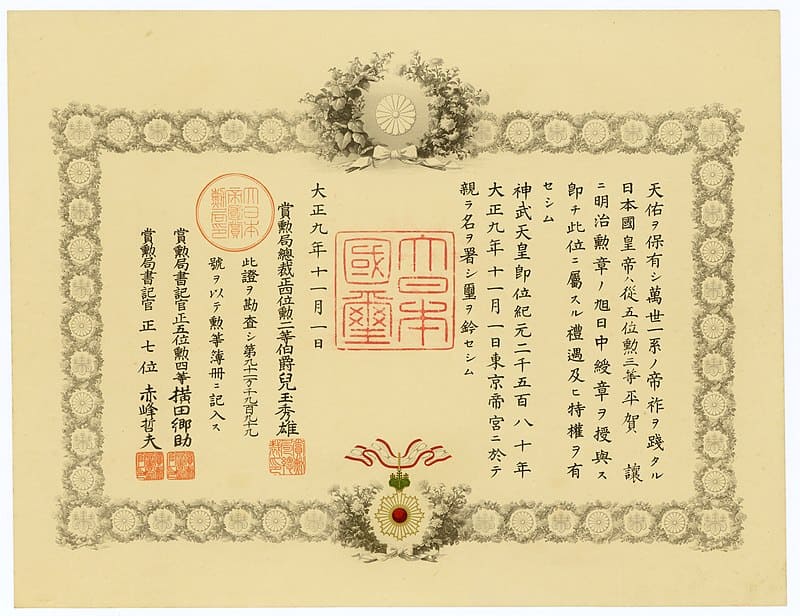 天佑ヲ保有シ萬世一系ノ帝祚ヲ踐タル
日本國皇帝ハ從五位勲三等平賀 讓
ニ明治勲章ノ旭日中綬章ヲ授與ス
即チ此位ニ屬スル禮遇及ヒ特權ヲ有
セシム
神武天皇即位紀元二千五百八十年
大正九年十一月一日東京帝宮ニ於テ
親ラ名ヲ署シ璽ヲ鈐セシム
大日本
國璽
大正九年十一月一日
賞勲局總裁正四位勲二等伯爵兒玉秀雄
此證ヲ勘査シ第
號ヲ以テ勲等簿冊ニ記入ス
大日本
帝國賞
勲局印
賞勲局書記官正五位勲四等横田郷助
賞勲局書記官 正七位 赤峰哲夫